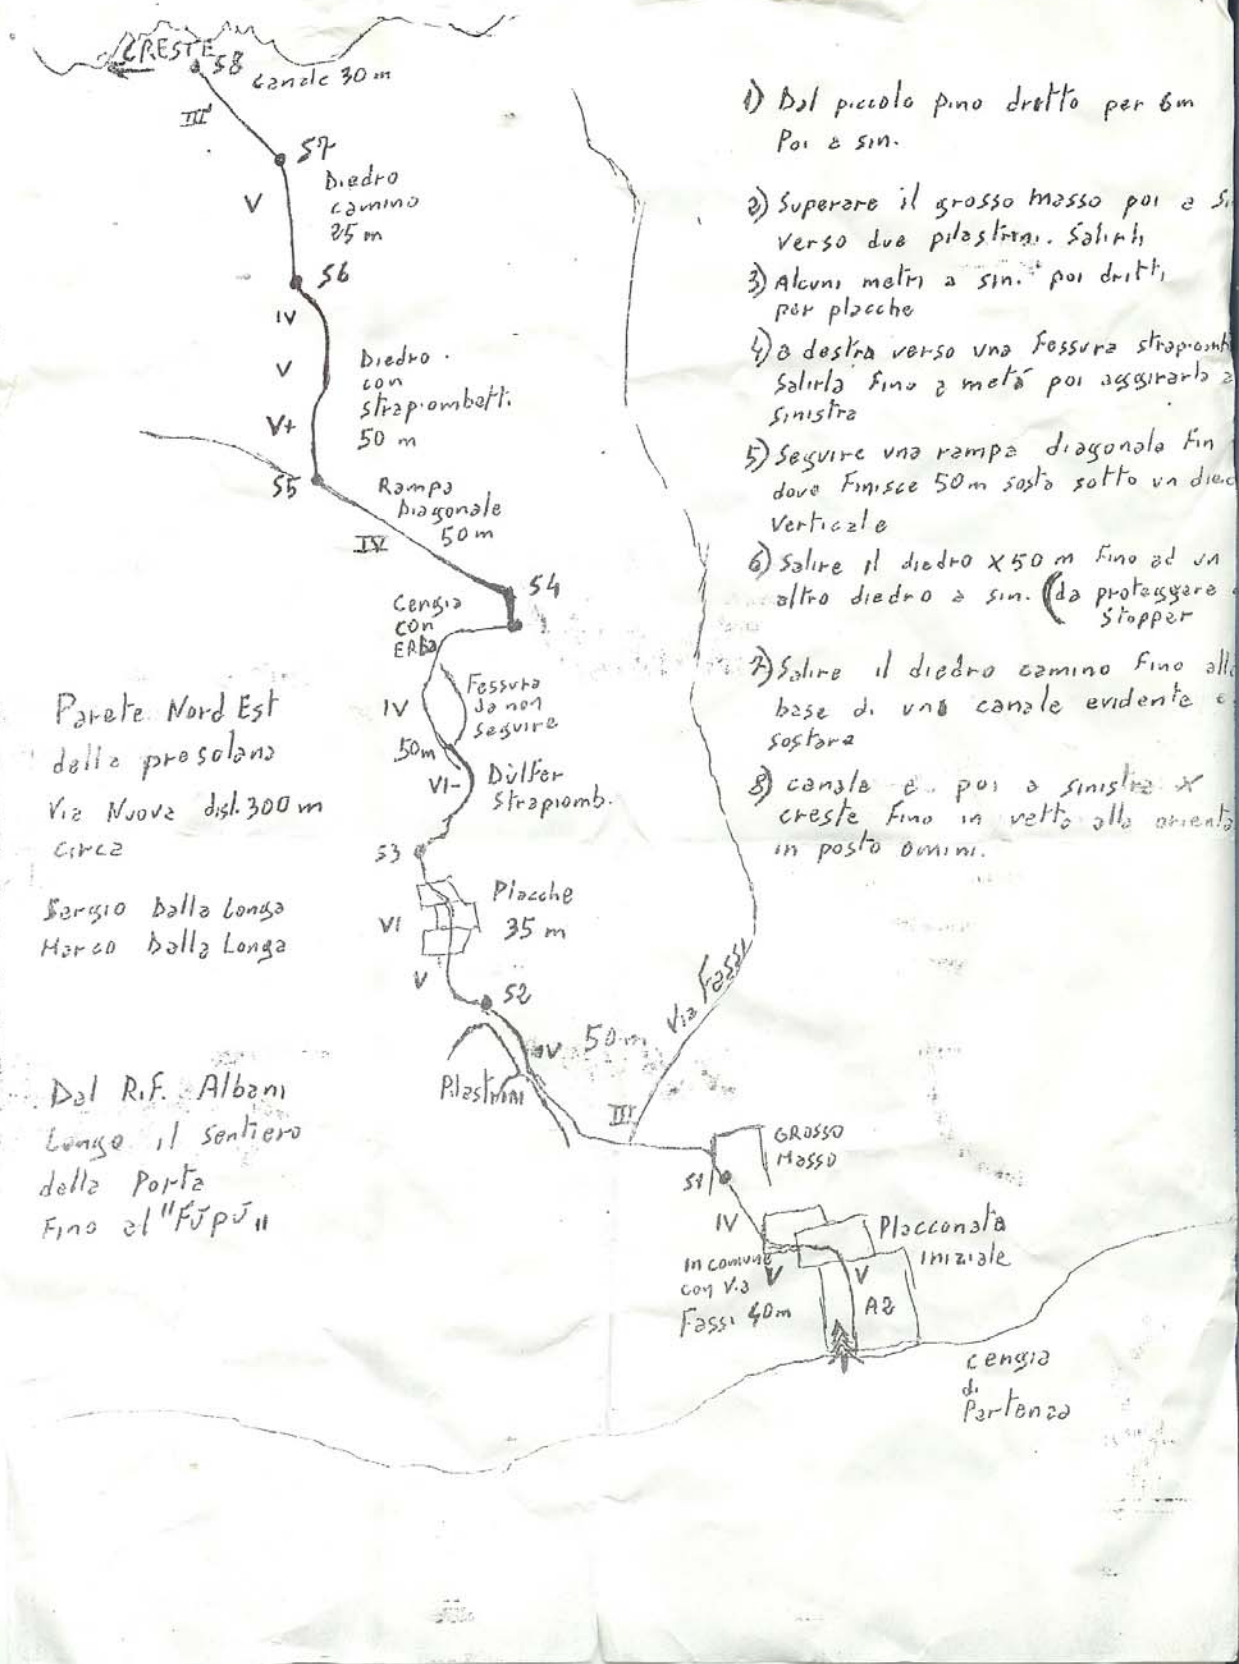 CRESTE
S8
Canale 30 m
III
S7
V
Diedro
camino
25 m
S6
IV
V
Diedro
con
strapiombatti
50 m
V+
S5
Rampa
Diagonale
50 m
IV
S4
Cengia
con
ERba
Fessura
da non
seguire
IV
50m
VI-
Dülfer
strapiomb.
S3
Placche
35 m
VI
V
S2
IV
50 m
Pilastrini
Via Fassi
III
GROSSO
Masso
S1
IV
Placconata
iniziale
in comune
con via
Fassi 40m
V
V
A2
cengia
di
Partenza
Parete Nord Est
della presolana
Via Nuova disl. 300 m
circa
Sergio Dalla Longa
Marco Dalla Longa
Dal Rif. Albani
Longo il sentiero
della Porta
Fino al "Füpü"
1) Dal piccolo pino dretto per 6m
Poi a sin.
2) Superare il grosso masso poi a
verso due pilastrini. Salirli
3) Alcuni metri a sin. poi dritti
per placche
4) a destra verso una Fessura
Salirla Fino a metá poi aggirarla a
sinistra
5) Seguire una rampa diagonale Fin
dove Finisce 50m sosta sotto un
verticale
6) Salire il diedro x 50 m Fino ad un
altro diedro a sin. (da proteggere
Stopper
7) Salire il diedro camino Fino
base di una canale evidente e
sostare
8) canale e poi a sinistra x
creste Fino in vetta alla
in posto omini.